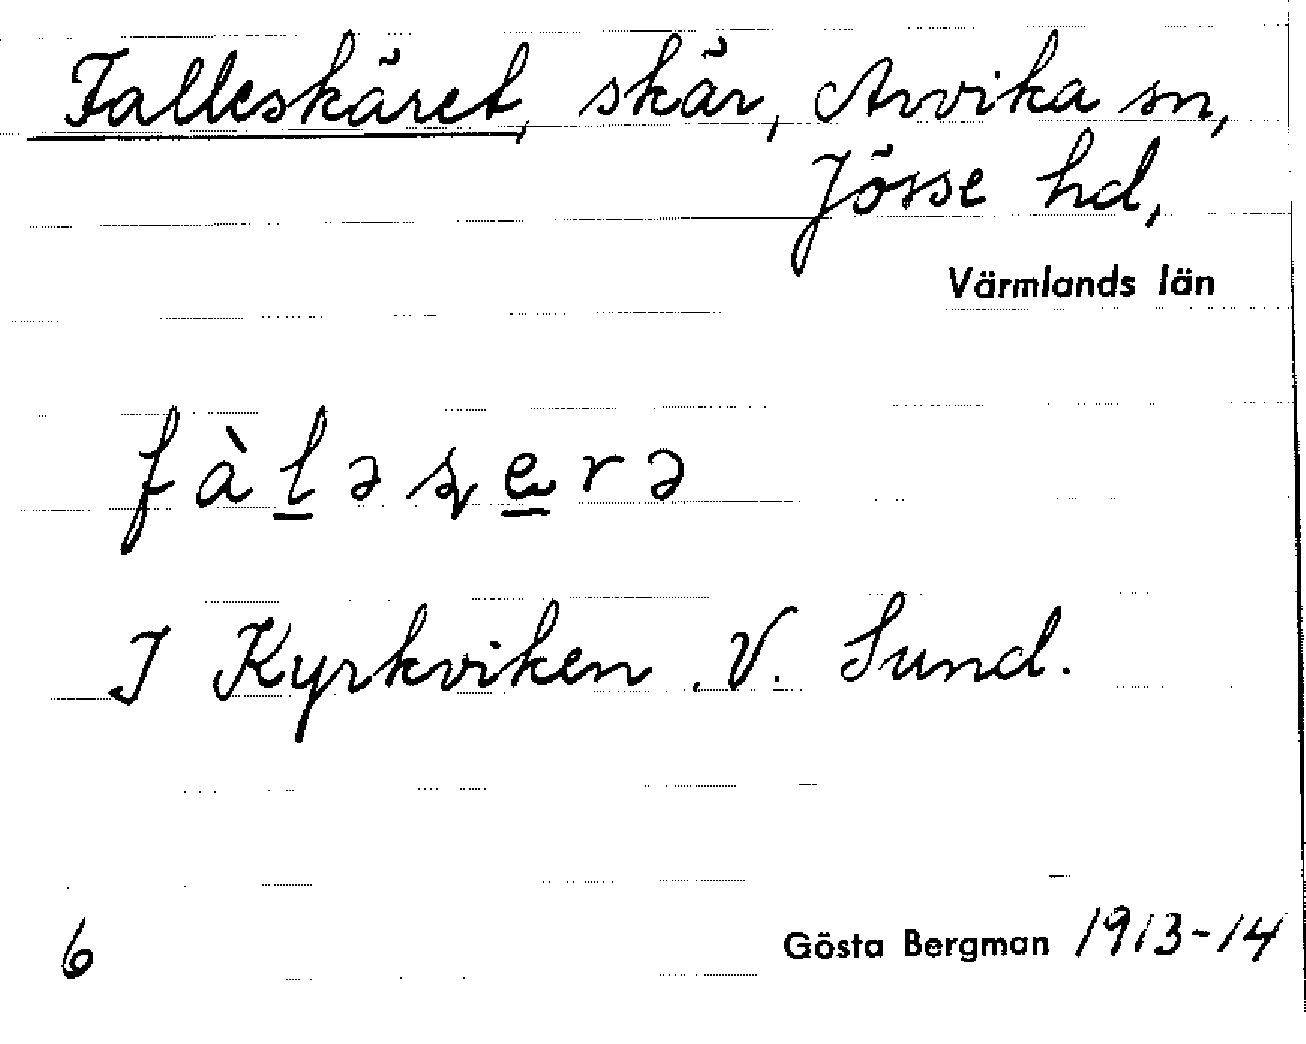 Falleskäret, skär, Arvika sn,
Jösse hd,
Värmlands län
I Kyrkviken V. Sund.
6
Gösta Bergman 1913-14